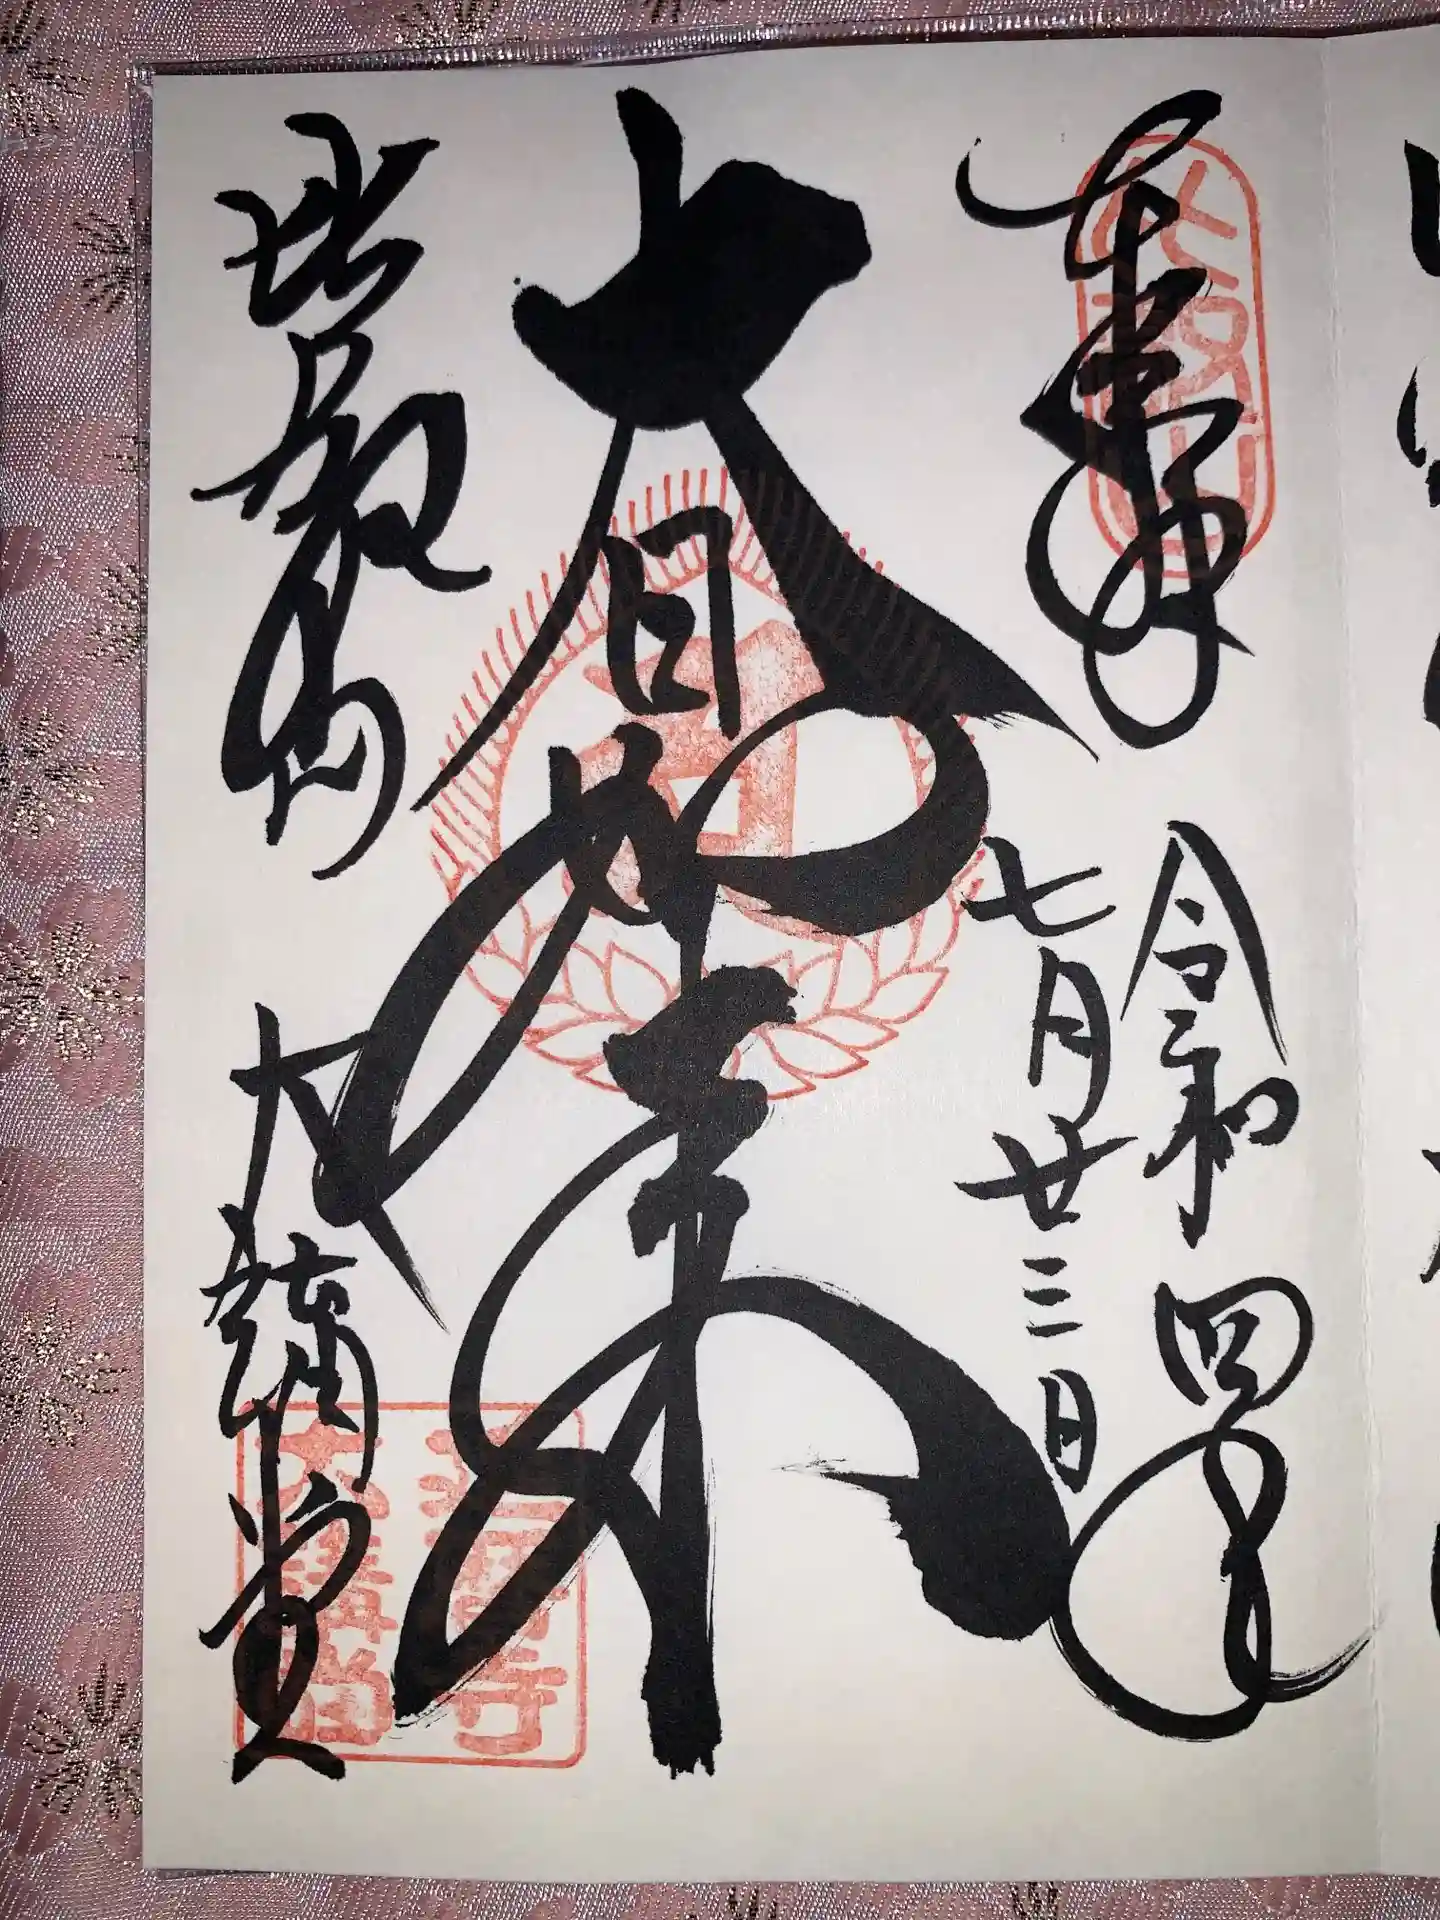 奉拝
令和四年
七月廿三日
大日如来
比叡山 大講堂
延暦寺
大講堂